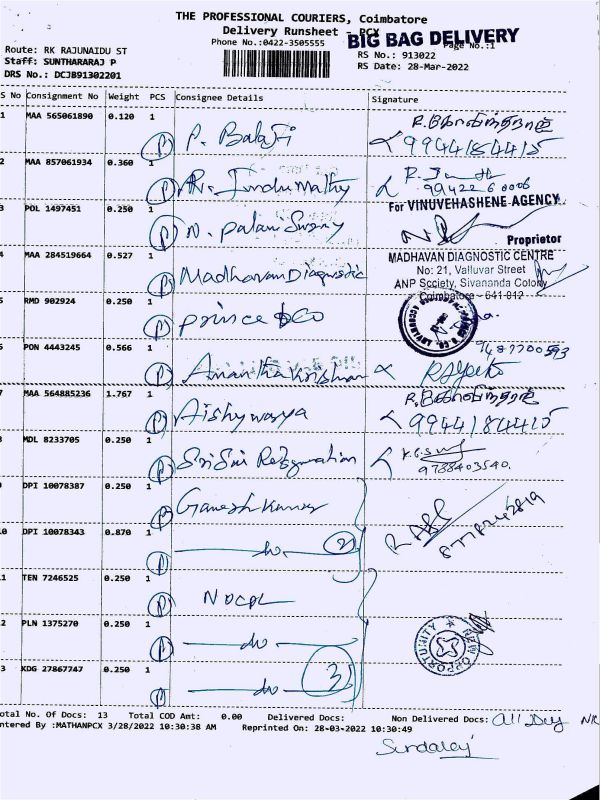 THE PROFESSIONAL COURIERS, Coimbatore
Delivery Runsheet - PCX
BIG BAG DELIVERY
Phone No.:0422-3505555
Page No.:1
Route: RK RAJUNAIDU ST
RS No.: 913022
Staff: SUNTHARARAJ P
RS Date: 28-Mar-2022
DRS No.: DCJB91302201
S No Consignment No Weight PCS Consignee Details Signature
1 MAA 565061890 0.120 1 P. Balaji
2 MAA 857061934 0.360 1 R. Indhumathy
For VINUVEHASHENE AGENCY
3 POL 1497451 0.250 1 N. Palani Swamy
Proprietor
4 MAA 284519664 0.527 1 Madhavan Diagnostic
MADHAVAN DIAGNOSTIC CENTRE
No: 21, Valluvar Street
ANP Society, Sivananda Colony
Coimbatore - 641 012
5 RMD 902924 0.250 1 Prince & CO
6 PON 4443245 0.566 1 Ananthakrishnan
7 MAA 564885236 1.767 1 Aishywarya
9944184415
8 MDL 8233705 0.250 1 Sri Sai
9788403540.
9 DPI 10078387 0.250 1 Ganesh Kumar
10 DPI 10078343 0.870 1 do 2
11 TEN 7246525 0.250 1 NDCPL
12 PLN 1375270 0.250 1 do
NEW OPPORTUNITY
13 KDG 27867747 0.250 1 do 3
Total No. Of Docs: 13 Total COD Amt: 0.00 Delivered Docs: Non Delivered Docs: All Dey NR
Entered By :MATHANPCX 3/28/2022 10:30:38 AM Reprinted On: 28-03-2022 10:30:49